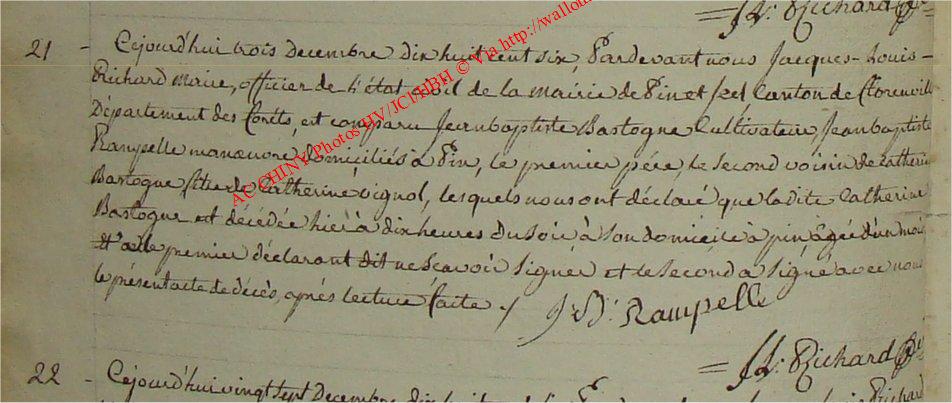 J. L. Richard
21 - Cejourd'hui trois Decembre dix huit cent six, Pardevant nous Jacques-Louis-
Richard Maire, officier de l'état civil de la mairie de Pin et Izel Canton de florenville
Département des forêts, est comparu Jean baptiste Bastogne Cultivateur, Jean baptiste
Rampelle manœuvre, domiciliés à Pin, le premier père, le second voisin de Catherine
Bastogne fille de Catherine Vignol, lesquels nous ont déclaré que ladite Catherine
Bastogne est décédée hier à dix heures du soir à son domicile à pin, agée d'un mois
le premier déclarant dit ne scavoir signer et le second a signé avec nous
le présent acte de décès, après lecture faite ./
J B. Rampelle
J. L. Richard
22 - Cejourd'hui vingt sept Decembre
ACCHINY Photos HV/JCl/HBH © Via http://wallon